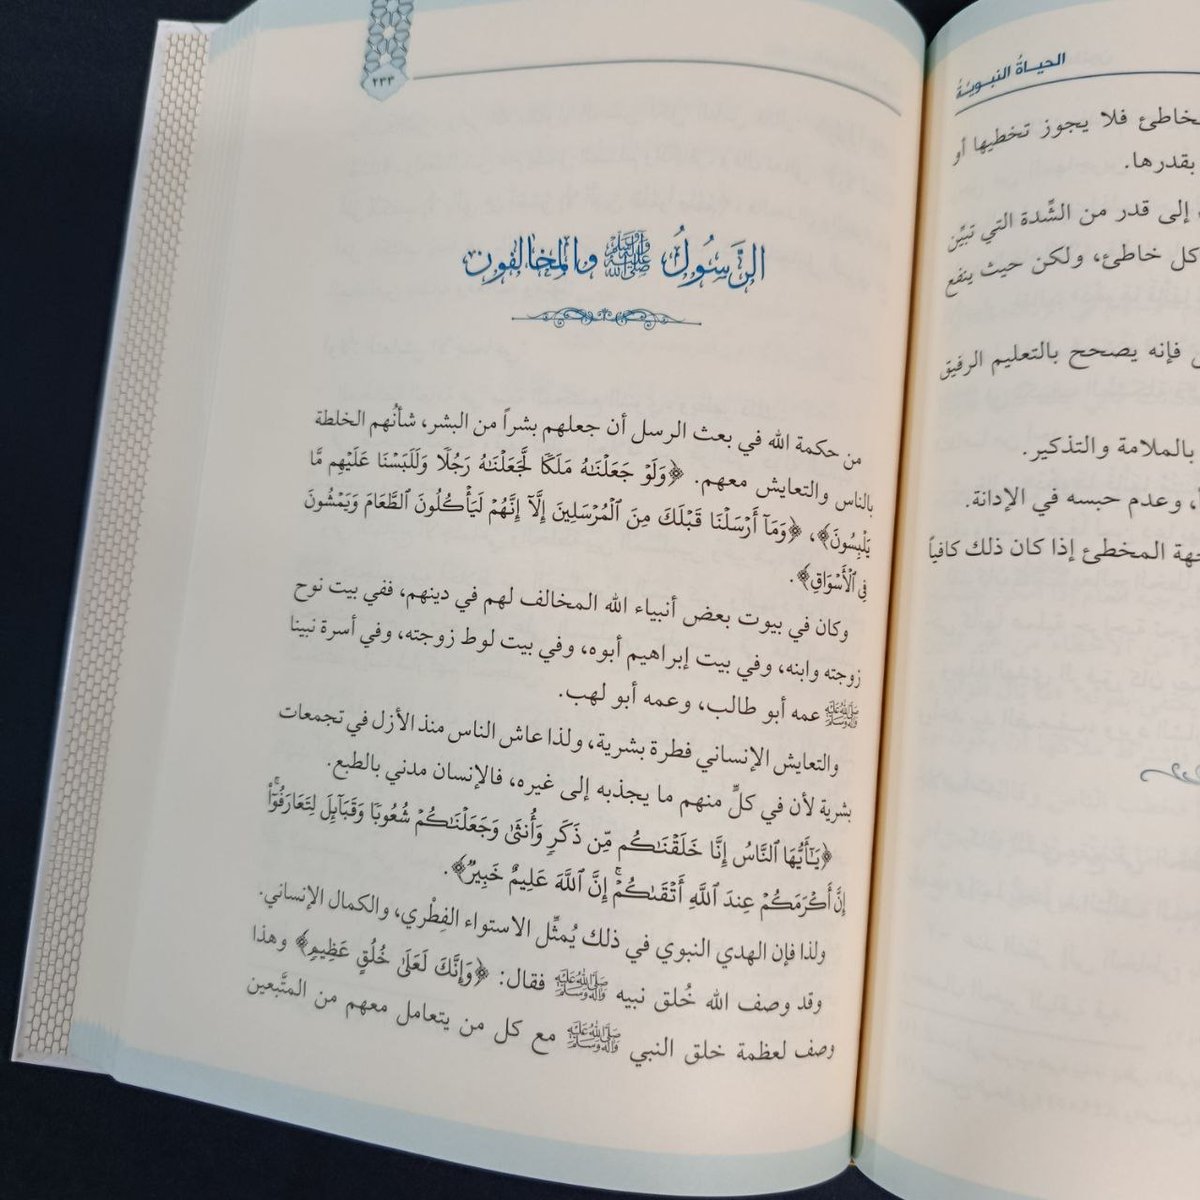 الحياةُ النبويَّةُ
خاطئ فلا يجوز تخطيها أو
بقدرها.
إلى قدر من الشِّدة التي تبيِّن
كل خاطئ، ولكن حيث ينفع
فإنه يصحح بالتعليم الرفيق
بالملامة والتذكير.
وعدم حبسه في الإدانة.
المخطئ إذا كان ذلك كافياً
٢٣٣
الرَّسُولُ ﷺ والمخالفون
من حكمة الله في بعث الرسل أن جعلهم بشراً من البشر، شأنُهم الخلطة
بالناس والتعايش معهم. ﴿وَلَوۡ جَعَلۡنَٰهُ مَلَكٗا لَّجَعَلۡنَٰهُ رَجُلٗا وَلَلَبَسۡنَا عَلَيۡهِم مَّا
يَلۡبِسُونَ﴾، ﴿وَمَآ أَرۡسَلۡنَا قَبۡلَكَ مِنَ ٱلۡمُرۡسَلِينَ إِلَّآ إِنَّهُمۡ لَيَأۡكُلُونَ ٱلطَّعَامَ وَيَمۡشُونَ
فِي ٱلۡأَسۡوَاقِ﴾.
وكان في بيوت بعض أنبياء الله المخالف لهم في دينهم، ففي بيت نوح
زوجته وابنه، وفي بيت إبراهيم أبوه، وفي بيت لوط زوجته، وفي أسرة نبينا
ﷺ عمه أبو طالب، وعمه أبو لهب.
والتعايش الإنساني فطرة بشرية، ولذا عاش الناس منذ الأزل في تجمعات
بشرية لأن في كلٍّ منهم ما يجذبه إلى غيره، فالإنسان مدني بالطبع.
﴿يَٰٓأَيُّهَا ٱلنَّاسُ إِنَّا خَلَقۡنَٰكُم مِّن ذَكَرٖ وَأُنثَىٰ وَجَعَلۡنَٰكُمۡ شُعُوبٗا وَقَبَآئِلَ لِتَعَارَفُوٓاْۚ
إِنَّ أَكۡرَمَكُمۡ عِندَ ٱللَّهِ أَتۡقَىٰكُمۡۚ إِنَّ ٱللَّهَ عَلِيمٌ خَبِيرٞ﴾.
ولذا فإن الهدي النبوي في ذلك يُمثِّل الاستواء الفِطْري، والكمال الإنساني.
وقد وصف الله خُلق نبيه ﷺ فقال: ﴿وَإِنَّكَ لَعَلَىٰ خُلُقٍ عَظِيمٖ﴾ وهذا
وصف لعظمة خلق النبي ﷺ مع كل من يتعامل معهم من المتَّبعين